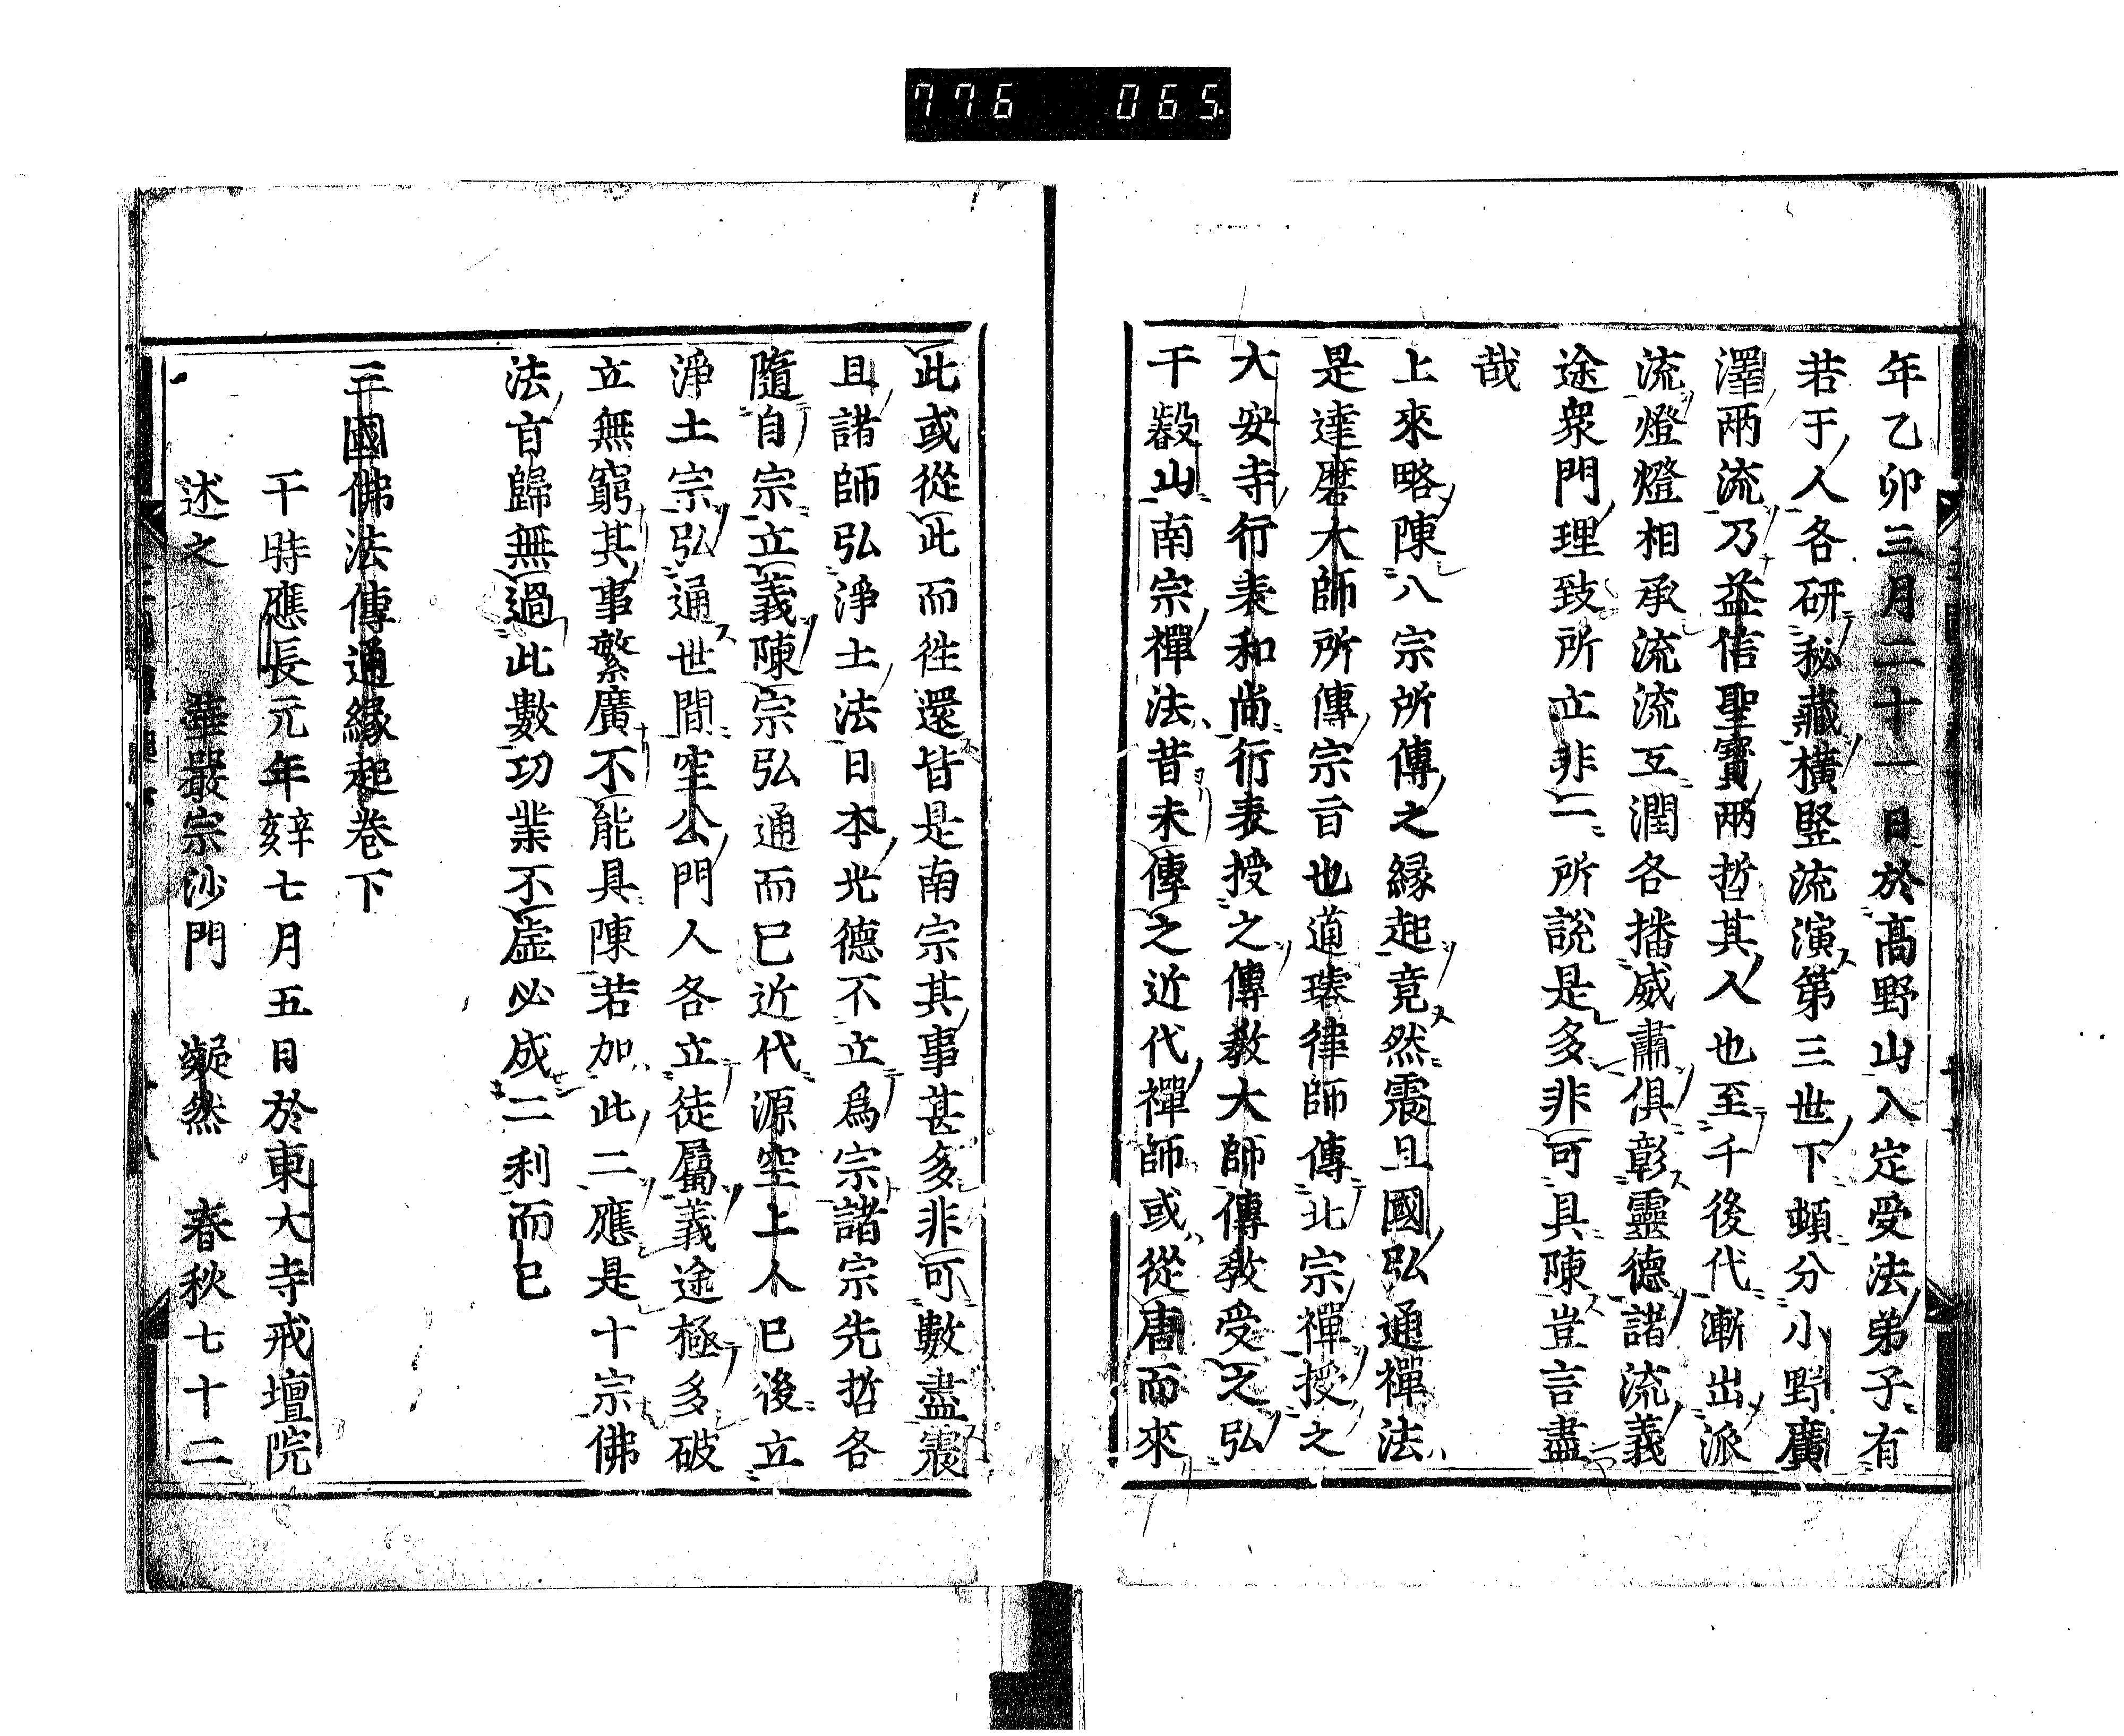 776 065
年乙卯三月二十一日於髙野山入定受法弟子有
若于人各研秘藏橫竪流演第三世下頓分小野廣
澤兩流乃益信聖寶兩哲其人也至千後代漸出派
流燈燈相承流流互潤各播威肅俱彰靈德諸流義
途衆門理致所立非一所說是多非可具陳豈言盡
哉
上來略陳八宗所傳之緣起竟然震旦國弘通禪法
是達磨大師所傳宗旨也道璿律師傳北宗禪授之
大安寺行表和尚行表授之傳教大師傳教受之弘
干叡山南宗禪法昔未傳之近代禪師或從唐而來
此或從此而徃還皆是南宗其事甚多非可數盡震
且諸師弘淨土法日本光德不立爲宗諸宗先哲各
隨自宗立義陳宗弘通而已近代源空上人已後立
淨土宗弘通世間空公門人各立徒屬義途極多破
立無窮其事繁廣不能具陳若加此二應是十宗佛
法旨歸無過此數功業不虛必成二利而已
三國佛法傳通緣起卷下
干時應長元年辛亥七月五日於東大寺戒壇院
述之 華嚴宗沙門 凝然 春秋七十二